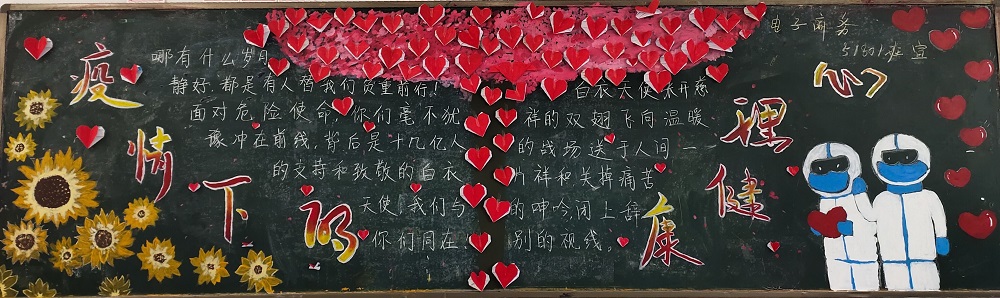 疫情下的心理健康
电子商务
51801班宣
哪有什么岁月
静好,都是有人替我们负重前行!
面对危险使命,你们毫不犹
豫冲在前线,背后是十几亿人
的支持和致敬的白衣
天使,我们与
你们同在!
白衣天使 张开慈
祥的双翅飞向温暖
的战场送于人间一
片祥和关掉痛苦
的呻吟闭上辞
别的视线。